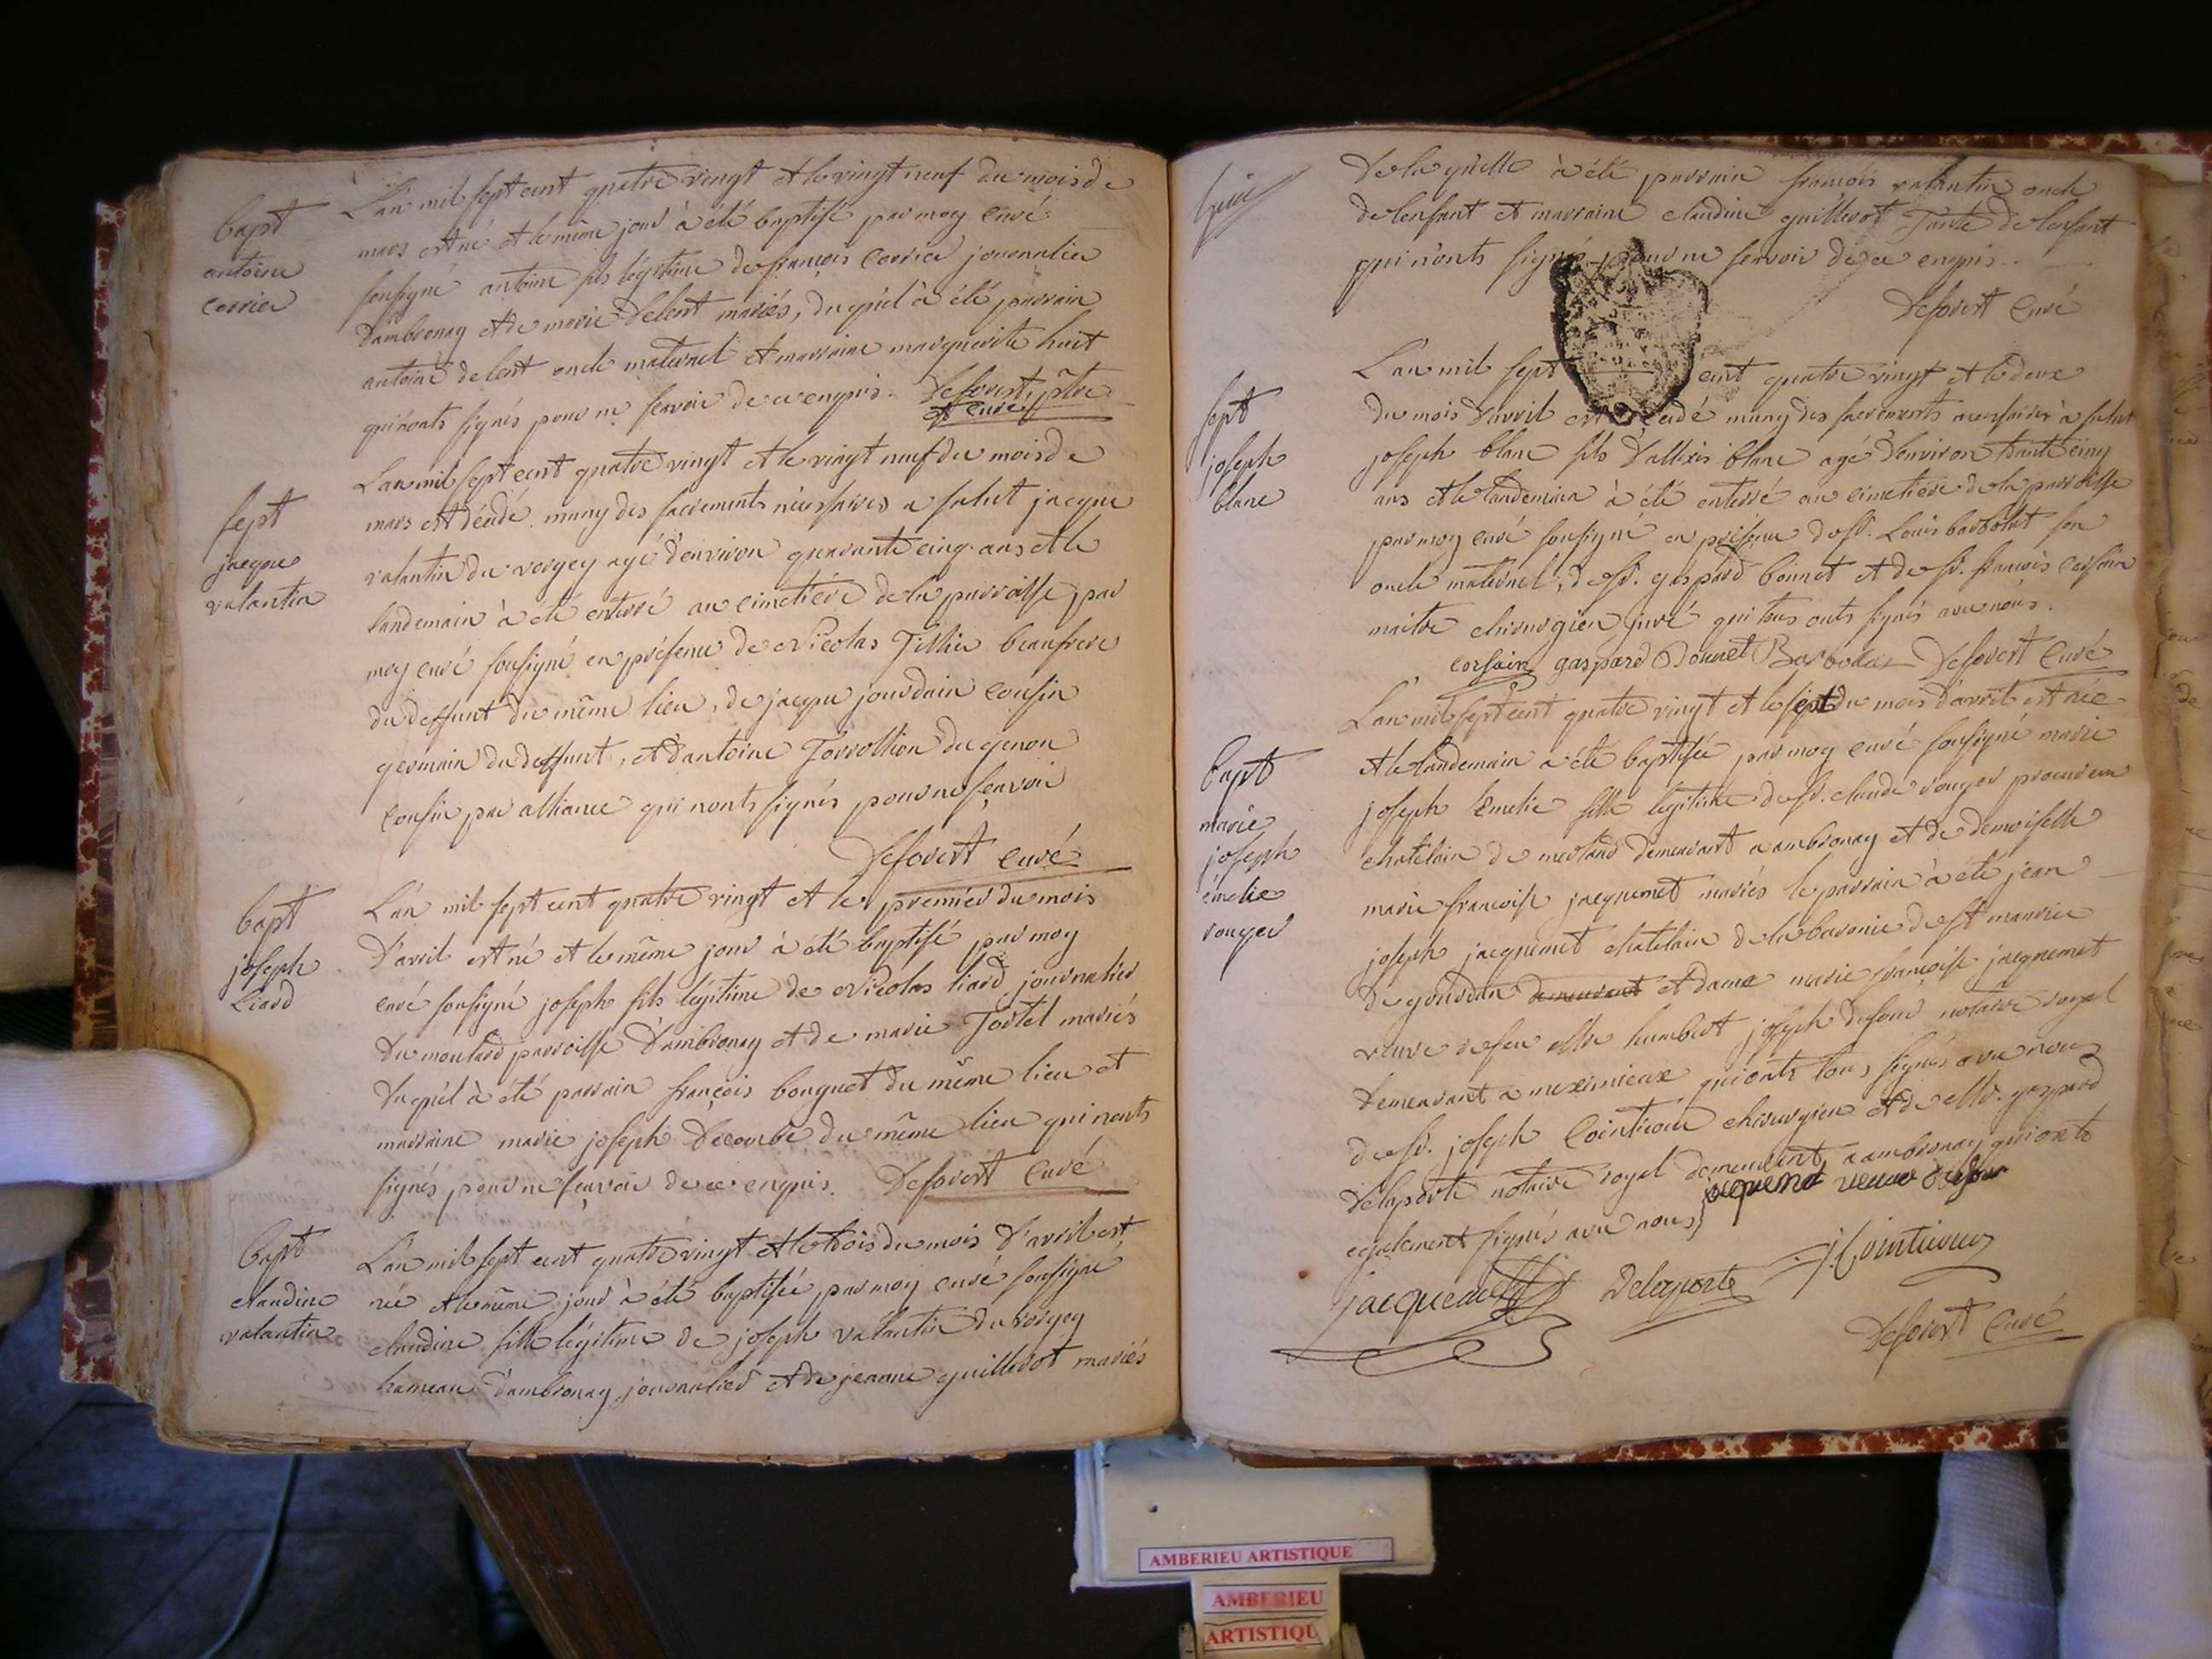 bapt
antoine
corrier
L'an mil sept cent quatre vingt et le vingt neuf du mois de
mars est né et le même jour à été baptisé par moy curé
sousigné antoine fils légitime de françois corrier journalier
d'ambronay et de marie delent mariés, duquel à été parrain
antoine delent oncle maternel et marraine marguerite huit
qui n'onts signés pour ne sçavoir de ce enquis. Deforest, ptre
et curé
sept
jacque
valantin
L'an mil sept cent quatre vingt et le vingt neuf du mois de
mars est décédé muny des sacrements nécessaires a salut jacque
valantin du vorgey agé d'environ quarante cinq ans et le
landemain à été enterré au cimetière de la parroisse, par
moy curé sousigné en présence de Nicolas Tillier beaufrere
du deffunt du même lieu, de jacque jourdain cousin
germain du deffunt, et d'antoine Torrollion du genou
cousin par alliance qui n'onts signés pour ne sçavoir
Deforest curé
bapt
joseph
Liard
L'an mil sept cent quatre vingt et le premier du mois
d'avril est né et le même jour à été baptisé par moy
curé sousigné joseph fils légitime de Nicolas liard journalier
du moulard parroisse d'ambronay et de marie Tortel mariés
duquel à été parrain françois bouguet du même lieu et
marraine marie joseph Decombe du même lieu qui n'onts
signés pour ne sçavoir de ce enquis. Deforest Curé
bapt
claudine
valantin
L'an mil sept cent quatre vingt et le trois du mois d'avril est
née et le même jour à été baptisée par moy curé sousigné
claudine fille légitime de joseph valantin du vorgey
hameau d'ambronay journalier et de jeanne guillerot mariés
De laquelle à été parrain françois valantin oncle
de l'enfant et marraine claudine guillerot Tante de l'enfant
qui n'onts signés pour ne sçavoir de ce enquis.
Deforest Curé
sept
joseph
blanc
L'an mil sept cent quatre vingt et le deux
du mois d'avril est décédé muny des sacrements necessaires à salut
joseph blanc fils d'allexis blanc agé d'environ trante cinq
ans et le landemain à été enterré au cimetière de la parroisse
par moy curé sousigné en présence de sr. Louis barbolat son
oncle maternel, de sr. gaspard bonnet et de sr. françois corsain
maitre chirurgien juré qui tous onts signés avec nous.
corsain gaspard Bonnet Barbolat Deforest Curé
bapt
marie
joseph
émelie
rouyer
L'an mil sept cent quatre vingt et le sept du mois d'avril est née
et le landemain a été baptisée par moy curé sousigné marie
joseph Emelie fille legitime de sr. claude rouyer procureur
chatelain de merland demeurant a ambronay et de demoiselle
marie françoise jacquemet mariés le parrain à été jean
joseph jacquemet chatelain de la baronie de st maurice
de gourdan demeurant et dame marie françoise jacquemet
veuve de feu Mre humbert joseph dufour notaire royal
demeurant a meximieux qui onts tous signés avec nous
de sr. joseph Cointicour chirurgien et de Mr. gaspard
delaporte notaire royal demeurant a ambronay qui onts
egalement signés avec nous, jacquemet veuve dufour
jacquemet Delaporte j. Cointicour
Deforest Curé
AMBERIEU ARTISTIQUE
AMBERIEU
ARTISTIQU